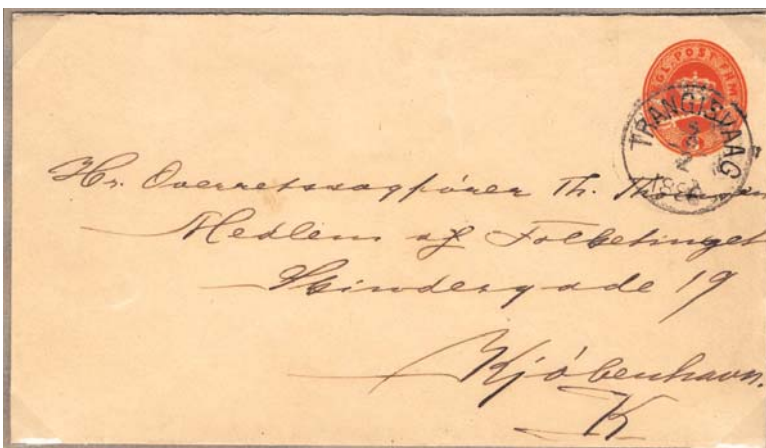 GL. POST FRM
TRANGISVAAG
Hr. Overretssagfører Th.
Medlem af Folketinget
Skindergade 19
Kjøbenhavn.
K